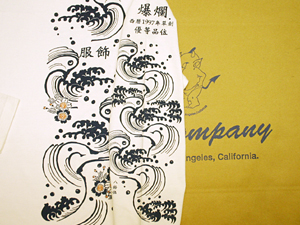 爆爛
西暦1997年革創
優等品位
服飾
ompany
ngeles, California.